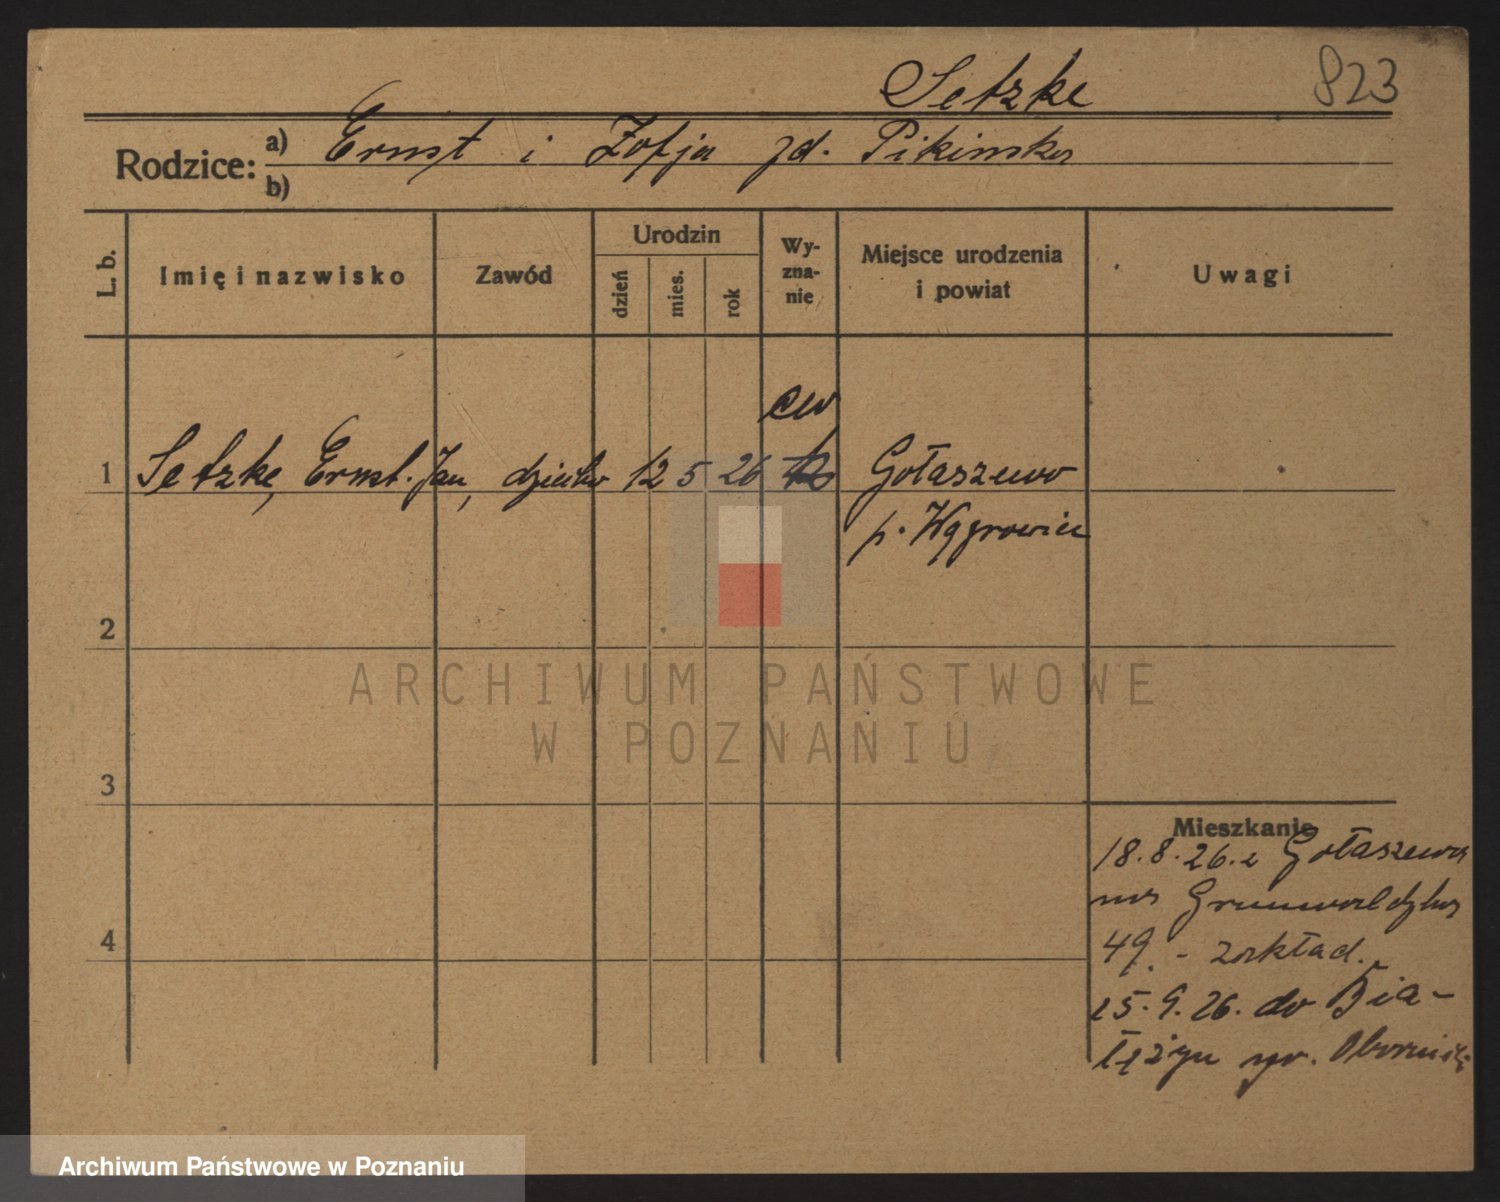 Setzke 823
Rodzice: a) Ernst i Zofja zd. Pikinska
b)
L. b. Imię i nazwisko Zawód Urodzin dzień mies. rok Wyznanie Miejsce urodzenia i powiat Uwagi
ew
1 Setzke, Ernst Jan, dziecko 12 5 26 Gołaszewo
p. Wągrowiec
2
3
4
Mieszkanie
18.8.26. z Gołaszewa
na Grunwaldzka
49. - zakład.
15.9.26. do Bia-
łężyn pow. Oborniki
ARCHIWUM PAŃSTWOWE
W POZNANIU
Archiwum Państwowe w Poznaniu